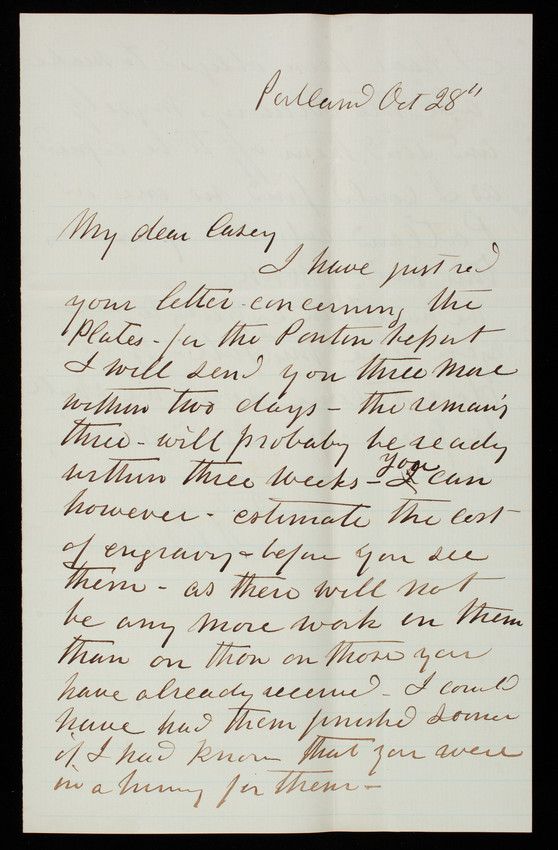 Portland Oct 28"
My dear Casey
I have just recd
your letter concerning the
Plates - for the Ponton Report
I will send you three more
within two days - the remaing
three - will probaby be ready
within three weeks - you can
however - estimate the cost
of engravng - before you see
them - as there will not
be any more work on them
than on thou on those you
have already received - I could
have had them finished sooner
if I had known that you were
in a hurry for them -